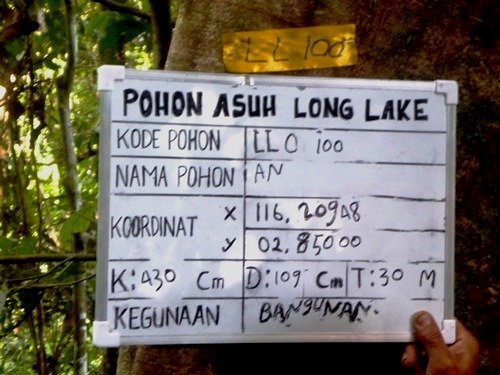 LL 100
POHON ASUH LONG LAKE
KODE POHON LLO 100
NAMA POHON AN
KOORDINAT X 116.20948
Y 02.85000
K: 430 Cm D: 109 Cm T: 30 M
KEGUNAAN BANGUNAN.